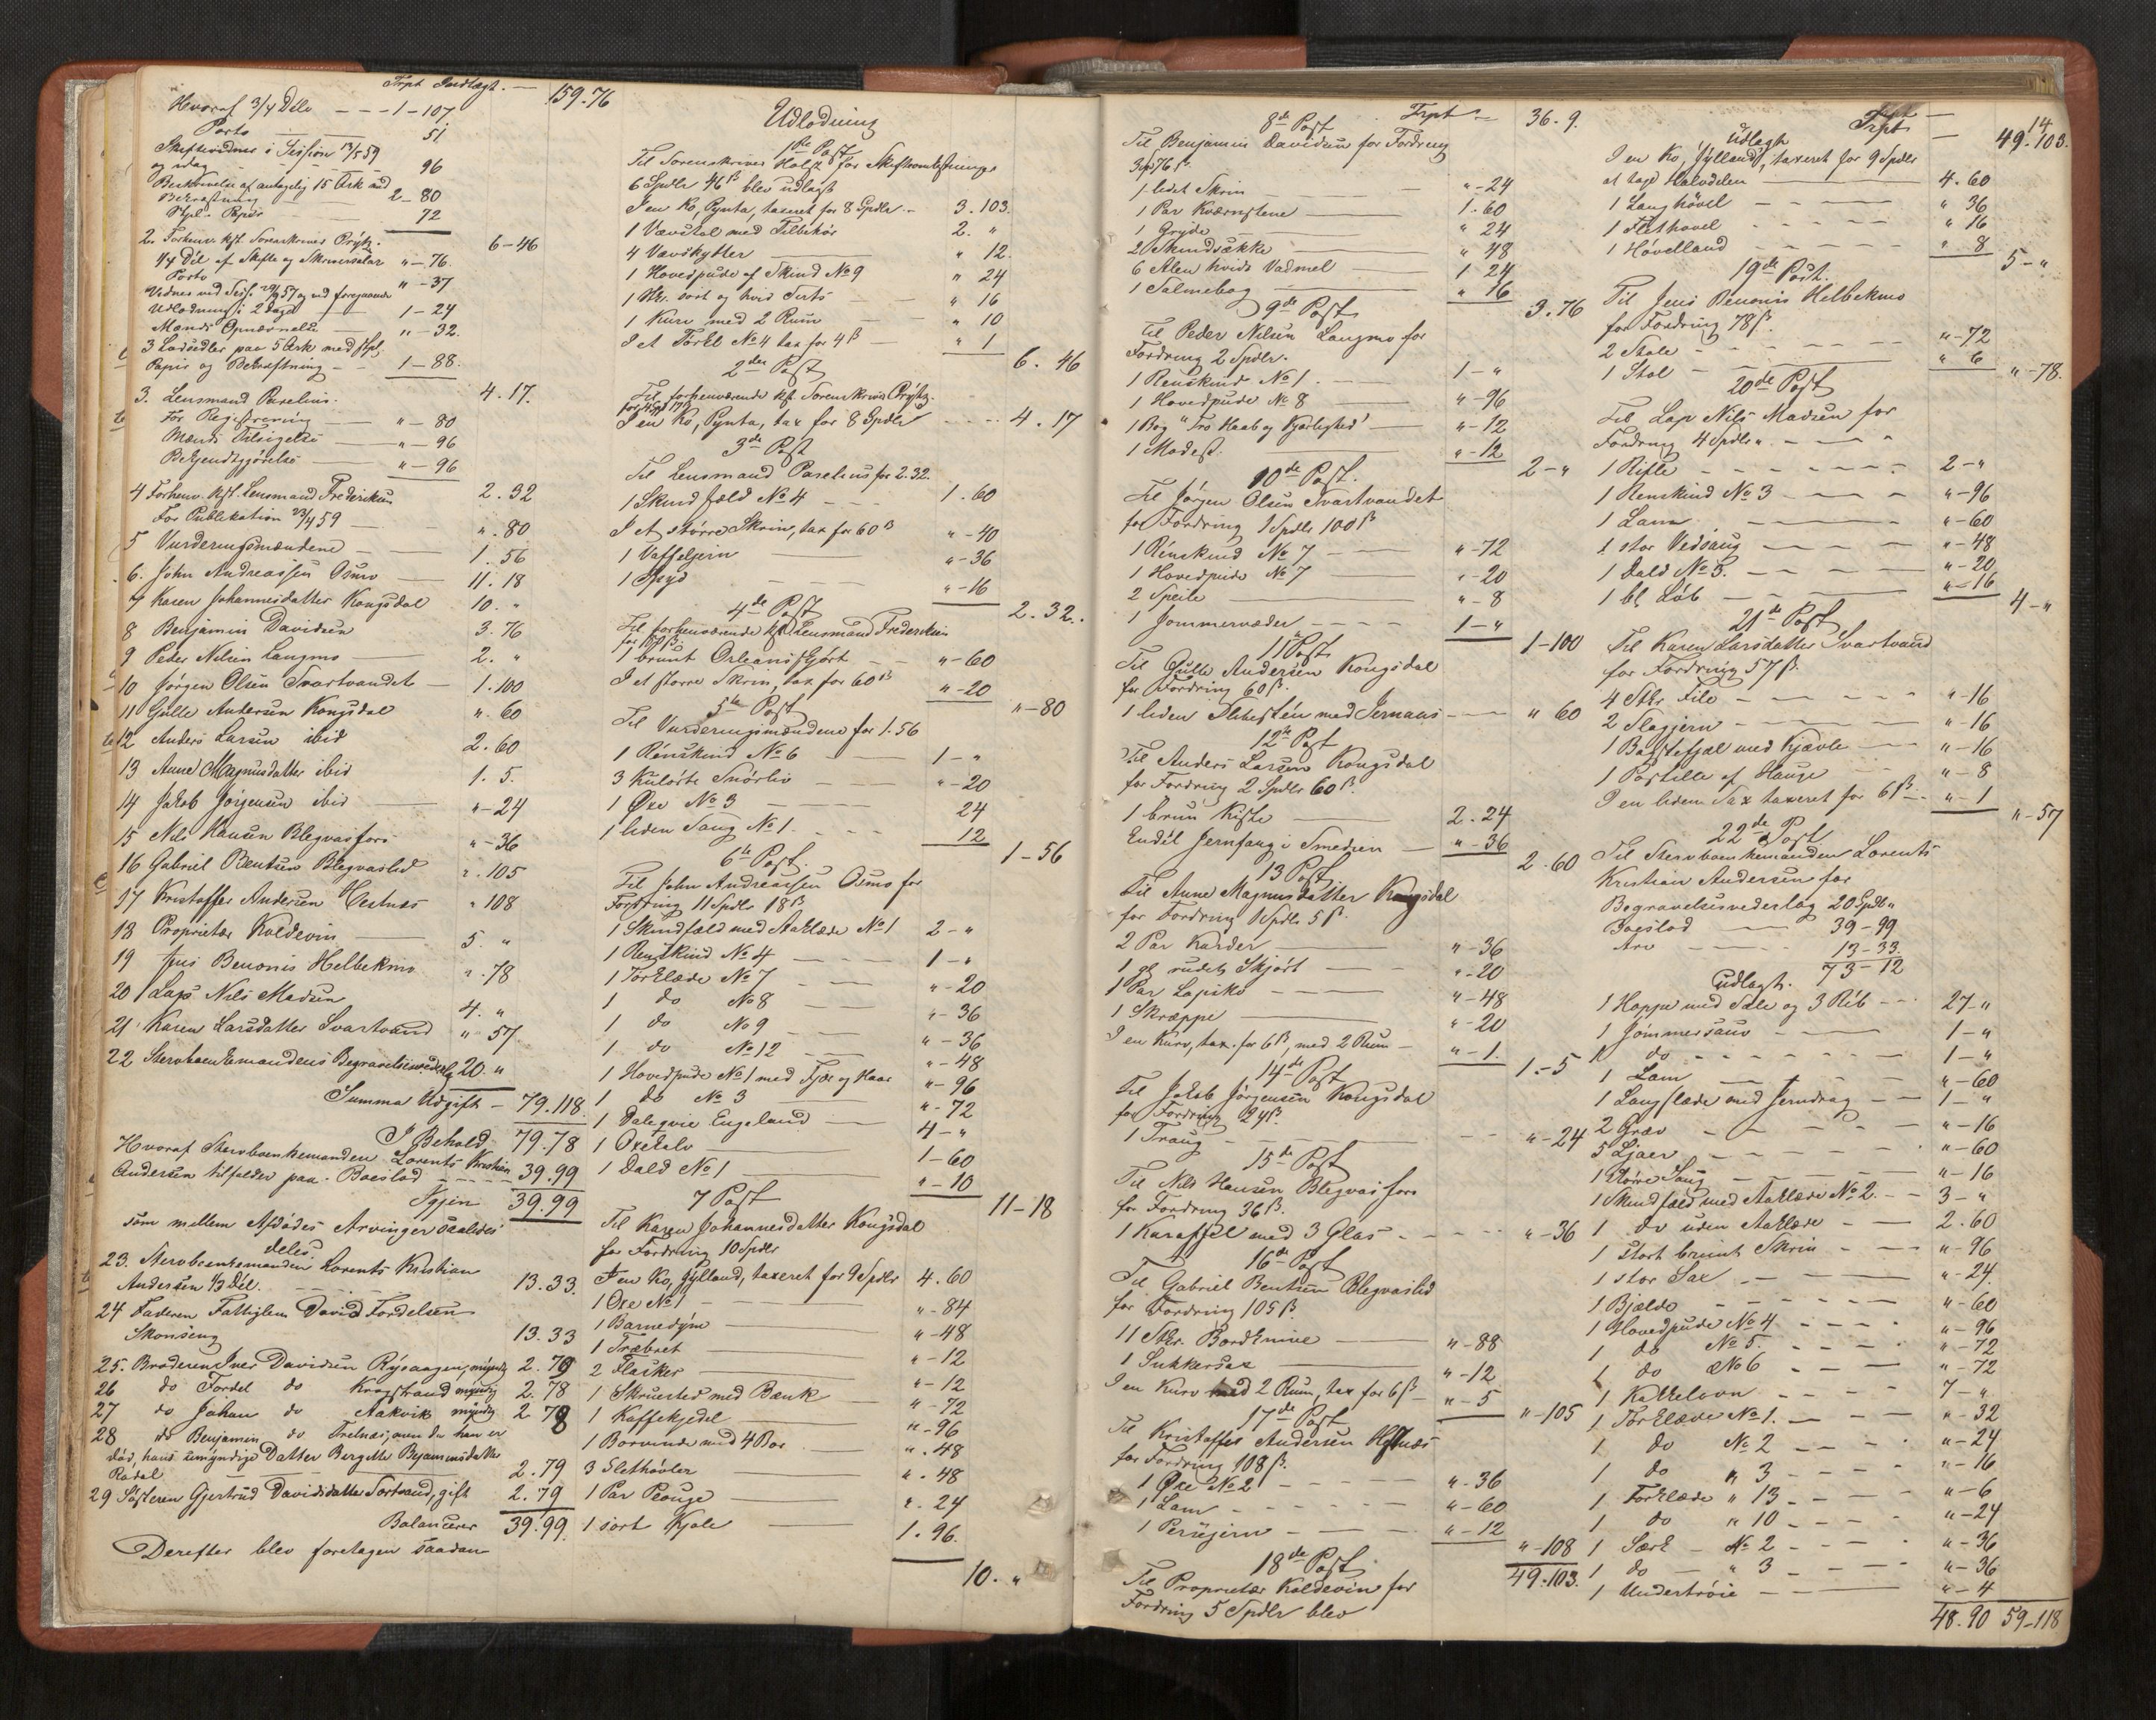 Trpt Indtægt. — 159.76
Hvoraf 3/4 Dele — — — 1-107
Porto — 51
Skiftevidner i Session 13/5 59
og idag — 96
Beskrivelse af antagelig 15 Ark med
Bekræftning 2-80
Stpl. Papir — 72
6-46
2. Forhenv. kst. Sorenskriver Prÿtz.
1/4 Del af Skifte og Skriversalær "-76.
Porto "-37
Vidner ved Sess. 29/9 57 og ved foregaaende
Udlodning i 2 Dage 1-24
Mænds Opnævnelse "-32.
3 Lodsedler paa 5 Ark med stpl.
Papir og Bekræftning — 1-88.
4.17.
3. Lensmand Parelius.
For Registrering — "-80
Mænds Tilsigelse — "-96
Bekjendtgjørelse — "-96
2.32
4 Forhenv. kst. Lensmand Frederiksen
For Publikation 23/4 59 — ".80
5 Vurderingsmændene — 1.56
6. John Andreassen Osmo — 11.18
7 Karen Johannesdatter Kongsdal 10."
8 Benjamin Davidsen 3.76
9 Peder Nilsen Langmo — 2."
10 Jørgen Olsen Svartvandet — 1.100
11 Gulle Andersen Kongsdal ".60
12 Anders Larsen ibid 2.60
13 Anne Magnusdatter ibid 1.5.
14 Jakob Jørgensen ibid — "-24
15 Nils Hansen Blegvasfors "-36
16 Gabriel Bentsen Blegvaslid ".105
17 Kristoffer Andersen Hestnes "108
18 Proprietær Koldevin — 5."
19 Jens Benonis Helbekmo ".78
20 Lap Nils Madsen 4."
21 Karen Larsdatter Svartvand "-57
22 Stervboenkemandens Begravelsesvederlag 20."
Summa Udgift — 79.118.
I Behold 79.78
Hvoraf Stervboenkemanden Lorents Kristian
Andersen tilfalder paa Boeslod — 39.99
Igjen 39.99
som mellem Afdødes Arvinger saaledes
deles.
23. Stervboenkemanden Lorents Kristian
Andersen 1/3 Del. 13.33.
24 Faderen Fattiglem David Fordelsen
Skonseng 13.33
25. Broderen Iver Davidsen Rÿsaagen, mÿndig 2.79
26 do Fordel do Krogstrand mÿndig 2.78
27 do Johan do Aakvik mÿndig 2.78
28 do Benjamin do men da han er
død, hans umÿndige Datter Bergitte Benjaminsdatter
Rødal 2.79
29 Søsteren Gjertrud Davidsdatter Sortvand, gift 2.79
Balancerer 39.99.
Derefter blev foretagen saadan
Udlodning
1ste Post
Til Sorenskriver Holst for Skifteomkostninger
6 Spdlr 46 ß blev udlagt
I en Ko, Pynta, taxeret for 8 Spdlr — 3.103.
1 Vævstol med Tilbehør 2."
4 Vævskytter — " 12.
1 Hovedpude af Skind No 9 " 24
1 Stk. sort og hvid Serts " 16
1 Kurv med 2 Rum — " 10
I et Torkl No 4 tax for 4 ß — " 1
6.46
2den Post
Til forhenværende kst Sorenskriver Prÿtz
for 4 Spd 17 ß
I en Ko, Pynta, tax for 8 Spdlr — 4.17
3de Post
Til Lensmand Parelius for 2.32.
1 Skindfæld No 4 — 1.60
I et større Skrin, tax for 60 ß "-40
1 Vaffeljern — "-36
1 Spÿd — "-16
2.32.
4de Post
Til forhenværende kst Lensmand Frederiksen
for 80 ß.
1 brunt Orleans Skjørt — "-60
I et større Skrin, tax for 60 ß "-20
"-80
5te Post
Til Vurderingsmændene for 1.56
1 Rénskind No 6 — 1-"
3 Kulørte Snørliv — "-20
1 Øxe No 3 — 24
1 liden Saug No 1. — 12
1-56
6te Post.
Til John Andreassen Osmo for
Fordring 11 Spdlr 18 ß
1 Skindfæld med Aaklæde No 1 2-"
1 Renskind No 4 — 1-"
1 Forklæde No 7 — "-20
1 do No 8 "-36
1 do No 9 — "-36
1 do No 12 "-48
1 Hovedpude No 1 med Fjær og Haar "-96
1 do No 3 — "-72
1 Dalegvie Engeland — 4-"
1 Oxekalv — 1-60
1 Dald No 1 — "-10
11-18
7 Post
Til Karen Johannesdatter Kongsdal
for Fordring 10 Spdlr
I en Ko, Gylland, taxeret for 9 Spdlr 4.60
1 Øxe No 1 — "-84
1 Barnedÿne — "-48
1 Træbret — "-12
2 Flasker — "-12
1 Skruested med Bænk — "-72
1 Kaffekjedel — "-96
1 Borvinde med 4 Bor — ".48
3 Slethøvler — ".48
1 Par Peouge — ".24
1 sort Kjole — 1.96.
10."
Trpt — 36.9.
8de Post
Til Benjamin Davidsen for Fordring
3 Sp 76 ß.
1 lidet Skrin — "-24
1 Par Kværnstene — 1.60
1 Gryde — " 24
2 Skindsække — " 48
6 Alen hvidt Vadmel — 1 24
1 Salmebog — " 16
3.76
9de Post
Til Peder Nilsen Langmo for
Fordring 2 Spdlr.
1 Renskind No 1. — 1-"
1 Hovedpude No 8 "-96
1 Bog "Tro Haab og Kjærlighed" — "-12
1 Modest. — "-12
2-"
10de Post.
Til Jørgen Olsen Svartvandet
for Fordring 1 Spdlr 100 ß
1 Rénskind No 7 — "-72
1 Hovedpude No 7 — "-20
2 Speile — "-8
1 Jommervæder — 1-"
1-100
11 Post
Til Gulle Andersen Kongsdal
for Fordring 60 ß.
1 liden Slibestén med Jernaas — " 60
12te Post
Til Anders Larsen Kongsdal
for Fordring 2 Spdlr 60 ß.
1 brun Kiste — 2.24
Endél Jernfang i Smedien — "-36
2.60
13 Post
Til Anne Magnusdatter Kongsdal
for Fordring 1 Spdlr 5 ß.
2 Par Karder — "-36
1 gl rudet Skjørt — "-20
1 Par Lapsko — "-48
1 Skræppe — "-20
I en Kurv, tax. for 6 ß, med 2 Rum — "-1.
1.-5
14de Post
Til Jakob Jørgensen Kongsdal
for Fordring 24 ß.
1 Traug — "-24
15de Post
Til Nils Hansen Blegvasfors
for Fordring 36 ß.
1 Karaffel med 3 Glas — "-36
16de Post
Til Gabriel Bentsen Blegvaslid
for Fordring 105 ß.
11 Stkr. Bordknive — "-88
1 Sukkersax — "-12
I en Kurv med 2 Rum, tax for 6 ß — "-5
"-105
17de Post
Til Kristoffer Andersen Hestnæs
for Fordring 108 ß.
1 Øxe No 2 — "-36
1 Lam — "-60
1 Persejern — "-12
"-108
49.103.
18de Post.
Til Proprietær Koldevin for
Fordring 5 Spdlr blev
14
Trpt — 49.103.
Udlagt
I en Ko, Jylland, taxeret for 9 Spdlr
at tage Halvdelen — 4.60
1 Langhøvel — " 36
1 Flethøvel — " 16
1 Høvelland — " 8
5-"
19de Post.
Til Jens Benonis Helbekmo
for Fordring 78 ß.
2 Stole — "-72
1 Stol — " 6
"-78.
20de Post
Til Lap Nils Madsen for
Fordring 4 Spdlr " —
1 Rifle — 2-"
1 Renskind No 3 — "-96
1 Lam — "-60
1 stor Vedsaug — "-48
1 Dald No 5. — "-20
1 bl Løb — "-16
4-"
21de Post
Til Karen Larsdatter Svartvand
for Fordring 57 ß.
4 Stkr File — "-16
2 Slagjern — "-16
1 Bagstefjæl med Kjævle — "-16
1 Postille af Hauge — "-8
I en liden Sax taxeret for 6 ß — "-1
"-57
22de Post
Til Stervboenkemanden Lorents
Kristian Andersen for
Begravelsesvederlag 20 Spdlr "
Boeslod — 39-99
Arv — 13-33.
73-12
Udlagt.
1 Hoppe med Sæle og 3 Réb — 27-"
1 Jømmersauv — 1-"
1 do — 1-"
1 Lam — "-60
1 Langslæde med Jerndrag — 1-"
2 Grev — "-16
5 Ljaer — "-60
1 større Saug — "-16
1 Skindfæld med Aaklæde No 2. — 3-"
1 do uden Aaklæde — 2.60
1 stort brunt Skrin — "-96
1 stor Sax — "-24.
1 Bjælde — "-60
1 Hovedpude No 4 — "-96
1 do No 5. — "-72
1 do No 6 — "-72
1 Kakkelovn — 7-"
1 Forklæde No 1. — "-32
1 do No 2 — "-24
1 do " 3 — "-16
1 Forklæde " 13 — "-6
1 do " 10 — "-24
1 Særk — No 2 — "-36
1 do — " 3 — "-36
1 Undertrøie — "-4
48.90 59-118